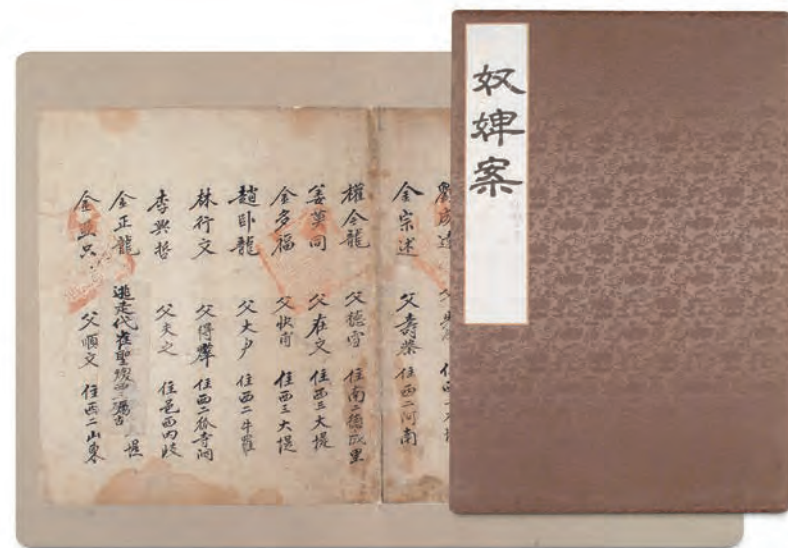 奴婢案
金宗述 父壽榮 住西二河南
權今龍 父德 住南二德 里
姜 同 父在文 住西三大堤
金多福 父快甫 住西三大堤
趙卧龍 父大 住西二牛羅
林行文 父得 住西二 寺洞
李興哲 父夫之 住邑西内岐
金正龍 逃走代崔聖 西三 古堤
金 只 父順文 住西二山東